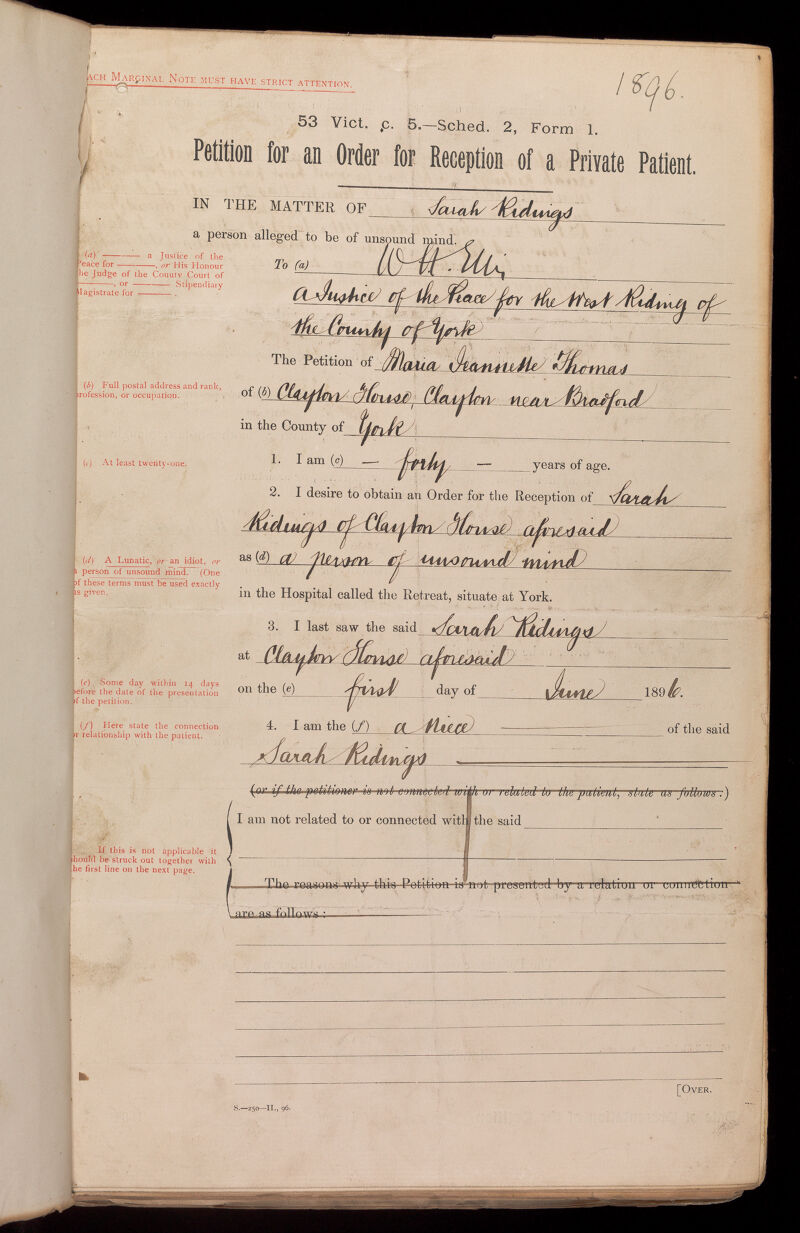 ACH MARGINAL NOTE MUST HAVE STRICT ATTENTION.
1896.
53 Vict. c. 5.—Sched. 2, Form 1.
Petition for an Order for Reception of a Private Patient.
IN THE MATTER OF Sarah Ridings
a person alleged to be of unsound mind.
(a) ——— a Justice of the
Peace for ———, or His Honour
the Judge of the County Court of
———, or ——— Stipendiary
Magistrate for ———.
To (a) W H. Ellis
a Justice of the Peace for the West Riding of
the County of York
The Petition of Maria Jeannette Thomas
(b) Full postal address and rank,
profession, or occupation.
of (b) Clayton House, Clayton near Bradford
in the County of York
(c) At least twenty-one.
1. I am (c) — forty — years of age.
2. I desire to obtain an Order for the Reception of Sarah
Ridings of Clayton House aforesaid
(d) A Lunatic, or an idiot, or
a person of unsound mind. (One
of these terms must be used exactly
as given.
as (d) a person of unsound mind
in the Hospital called the Retreat, situate at York.
3. I last saw the said Sarah Ridings
at Clayton House aforesaid
(e) Some day within 14 days
before the date of the presentation
of the petition.
on the (e) first day of June 1896.
(f) Here state the connection
or relationship with the patient.
4. I am the (f) a Niece of the said
Sarah Ridings
(or if the petitioner is not connected with or related to the patient, state as follows:)
I am not related to or connected with the said
If this is not applicable it
should be struck out together with
the first line on the next page.
The reasons why this Petition is not presented by a relation or connection
are as follows:
[OVER.
S.—250—II., 96.